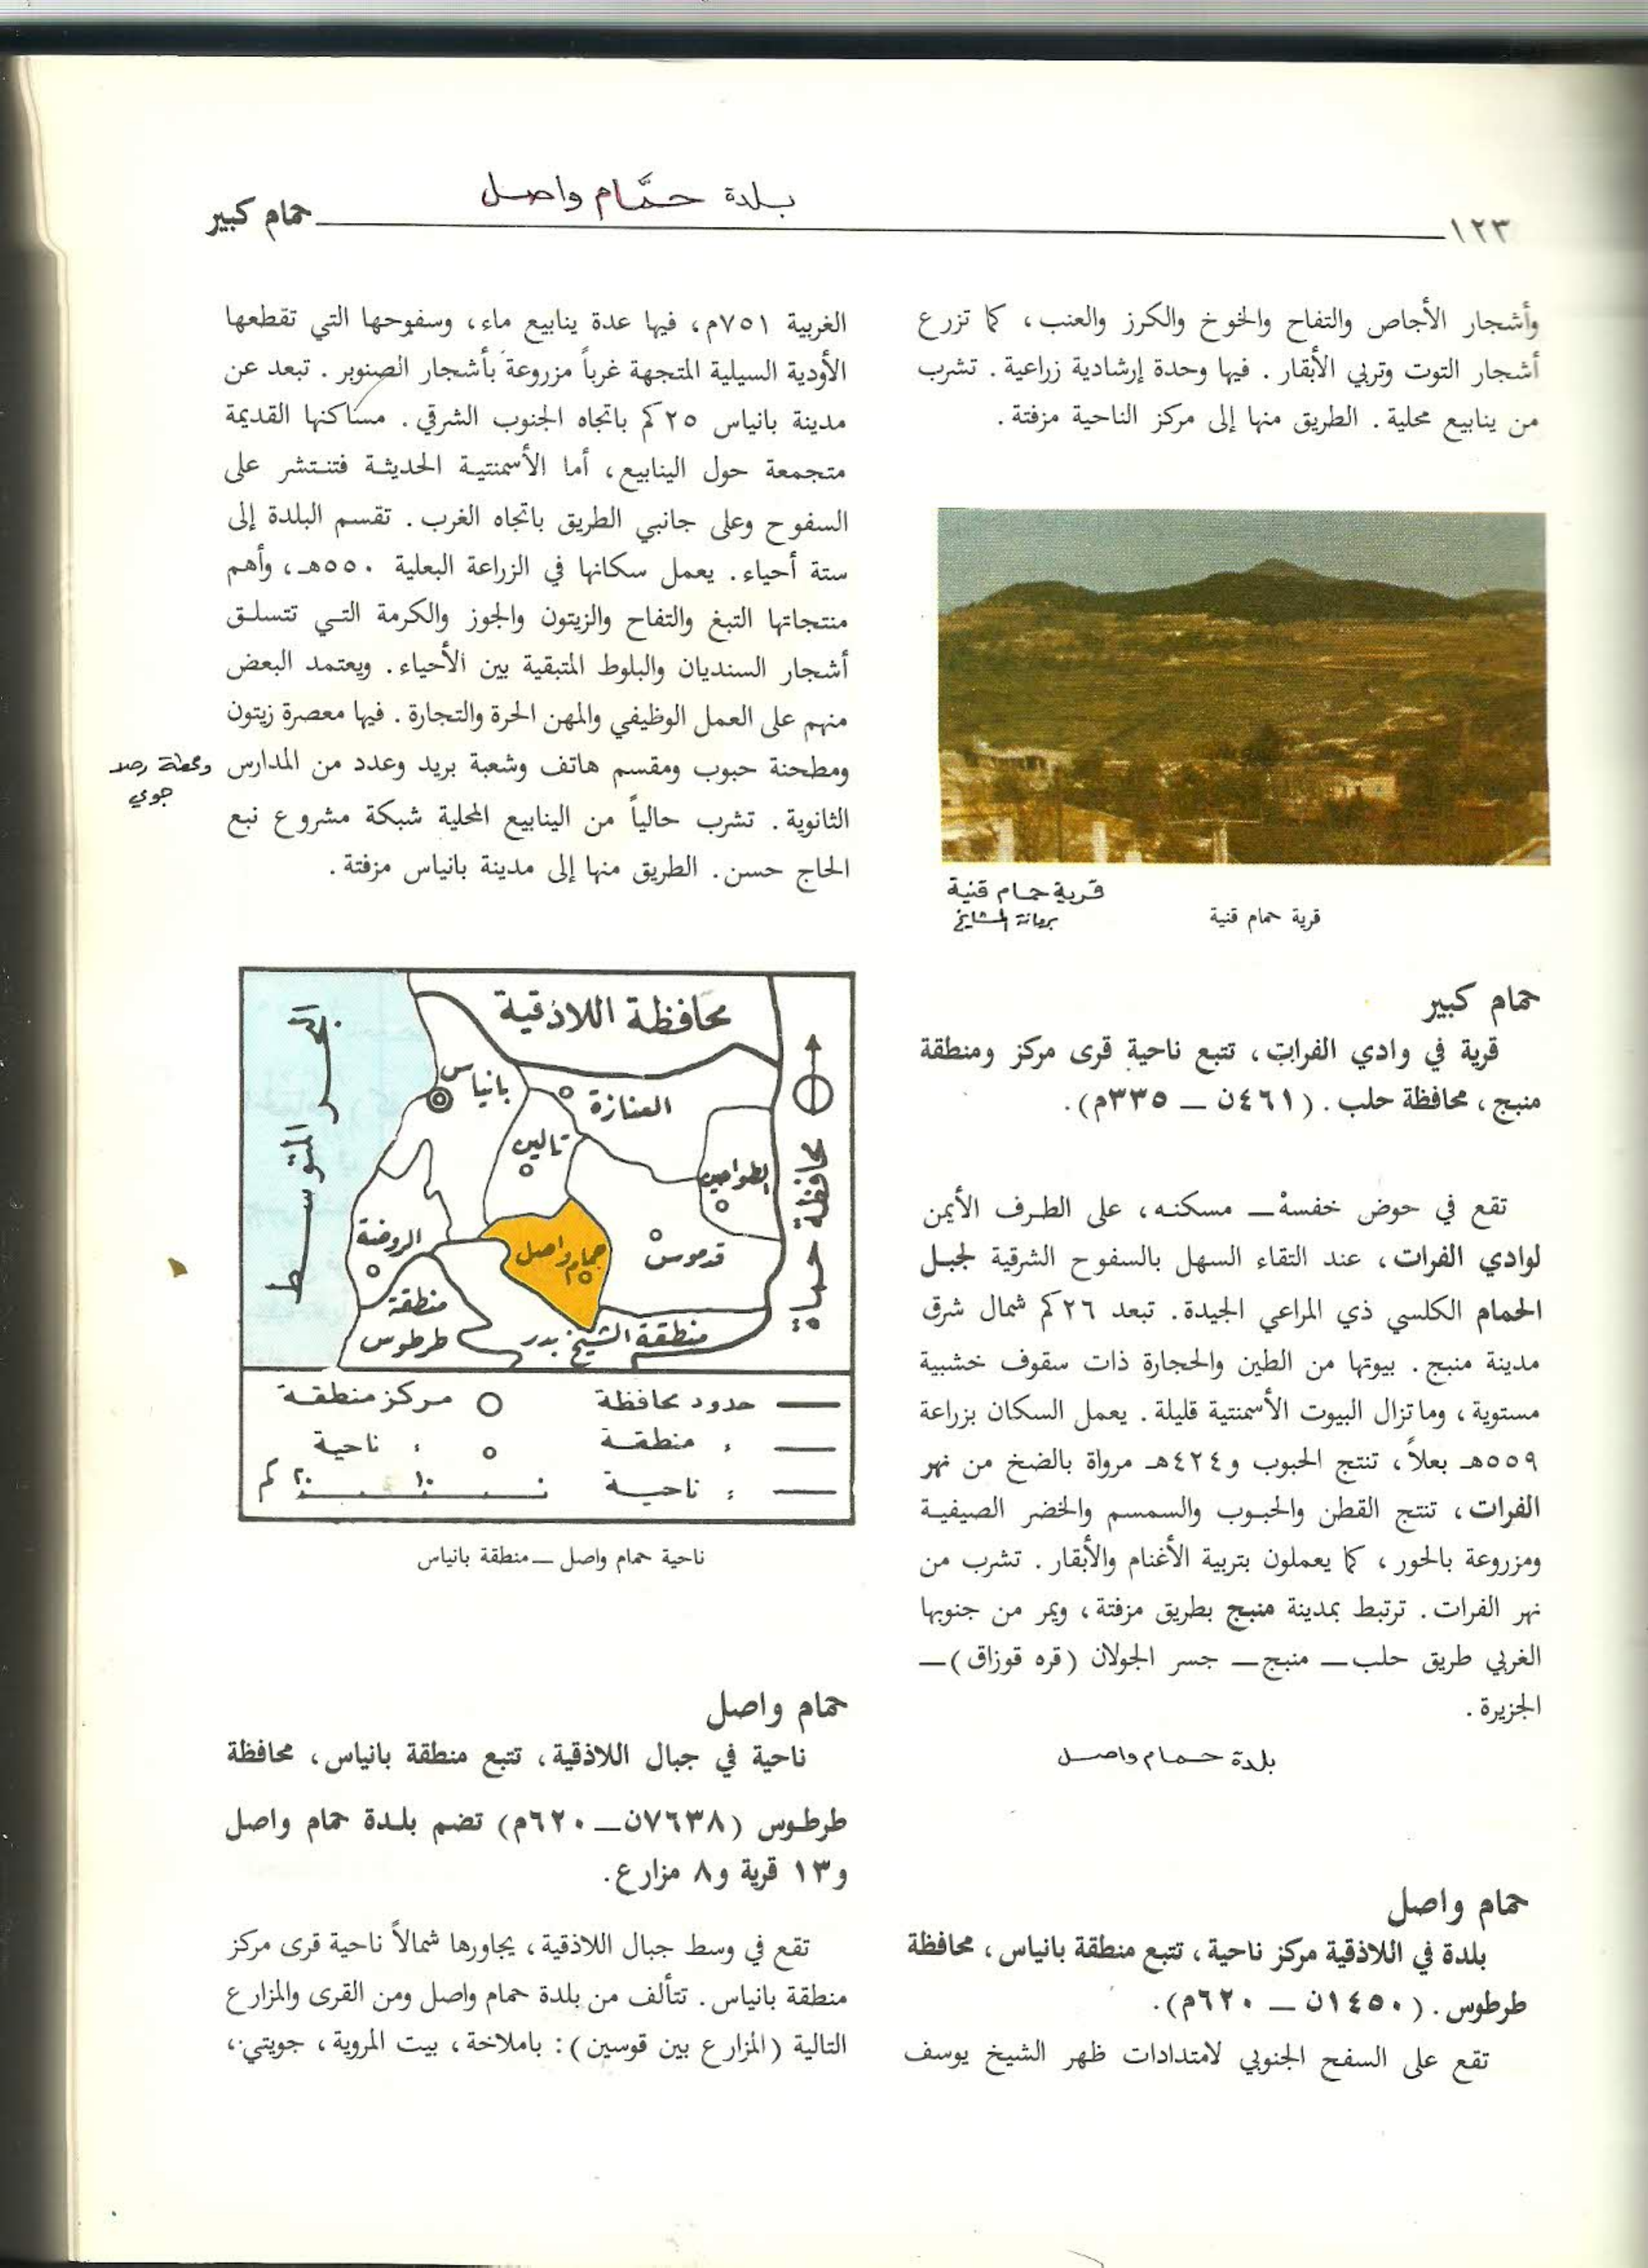 بلدة حمَّام واصل
١٢٣
حمام كبير
وأشجار الأجاص والتفاح والخوخ والكرز والعنب، كما تزرع
أشجار التوت وتربي الأبقار. فيها وحدة إرشادية زراعية. تشرب
من ينابيع محلية. الطريق منها إلى مركز الناحية مزفتة.
قرية حمام قنية
برمانة المشايخ
قرية حمام قنية
حمام كبير
قرية في وادي الفرات، تتبع ناحية قرى مركز ومنطقة
منبج، محافظة حلب. (٤٦١ن ــ ٣٣٥م).
تقع في حوض خفسة ــ مسكنه، على الطرف الأيمن
لوادي الفرات، عند التقاء السهل بالسفوح الشرقية لجبل
الحمام الكلسي ذي المراعي الجيدة. تبعد ٢٦كم شمال شرق
مدينة منبج. بيوتها من الطين والحجارة ذات سقوف خشبية
مستوية، وماتزال البيوت الأسمنتية قليلة. يعمل السكان بزراعة
٥٥٩هـ بعلاً، تنتج الحبوب و٤٢٤هـ مرواة بالضخ من نهر
الفرات، تنتج القطن والحبوب والسمسم والخضر الصيفية
ومزروعة بالحور، كما يعملون بتربية الأغنام والأبقار. تشرب من
نهر الفرات. ترتبط بمدينة منبج بطريق مزفتة، ويمر من جنوبها
الغربي طريق حلب ــ منبج ــ جسر الجولان (قره قوزاق) ــ
الجزيرة.
بلدة حمام واصل
حمام واصل
بلدة في اللاذقية مركز ناحية، تتبع منطقة بانياس، محافظة
طرطوس. (١٤٥٠ن ــ ٦٢٠م).
تقع على السفح الجنوبي لامتدادات ظهر الشيخ يوسف
الغربية ٧٥١م، فيها عدة ينابيع ماء، وسفوحها التي تقطعها
الأودية السيلية المتجهة غرباً مزروعة بأشجار الصنوبر. تبعد عن
مدينة بانياس ٢٥كم باتجاه الجنوب الشرقي. مساكنها القديمة
متجمعة حول الينابيع، أما الأسمنتية الحديثة فتنتشر على
السفوح وعلى جانبي الطريق باتجاه الغرب. تقسم البلدة إلى
ستة أحياء. يعمل سكانها في الزراعة البعلية ٥٥٠هـ، وأهم
منتجاتها التبغ والتفاح والزيتون والجوز والكرمة التي تتسلق
أشجار السنديان والبلوط المتبقية بين الأحياء. ويعتمد البعض
منهم على العمل الوظيفي والمهن الحرة والتجارة. فيها معصرة زيتون
ومطحنة حبوب ومقسم هاتف وشعبة بريد وعدد من المدارس
ومحطة رصد
جوي
الثانوية. تشرب حالياً من الينابيع المحلية شبكة مشروع نبع
الحاج حسن. الطريق منها إلى مدينة بانياس مزفتة.
محافظة اللاذقية
البحر المتوسط
بانياس
العنازة
تالين
الطواحين
محافظة حماة
الروضة
حمام واصل
قدموس
منطقة
طرطوس
منطقة الشيخ بدر
حدود محافظة
مركز منطقة
، منطقة
، ناحية
، ناحية
٠ ١٠ ٢٠ كم
ناحية حمام واصل ــ منطقة بانياس
حمام واصل
ناحية في جبال اللاذقية، تتبع منطقة بانياس، محافظة
طرطوس (٧٦٣٨ن ــ ٦٢٠م) تضم بلدة حمام واصل
و١٣ قرية و٨ مزارع.
تقع في وسط جبال اللاذقية، يجاورها شمالاً ناحية قرى مركز
منطقة بانياس. تتألف من بلدة حمام واصل ومن القرى والمزارع
التالية (المزارع بين قوسين): باملاخة، بيت المروية، جويتي،